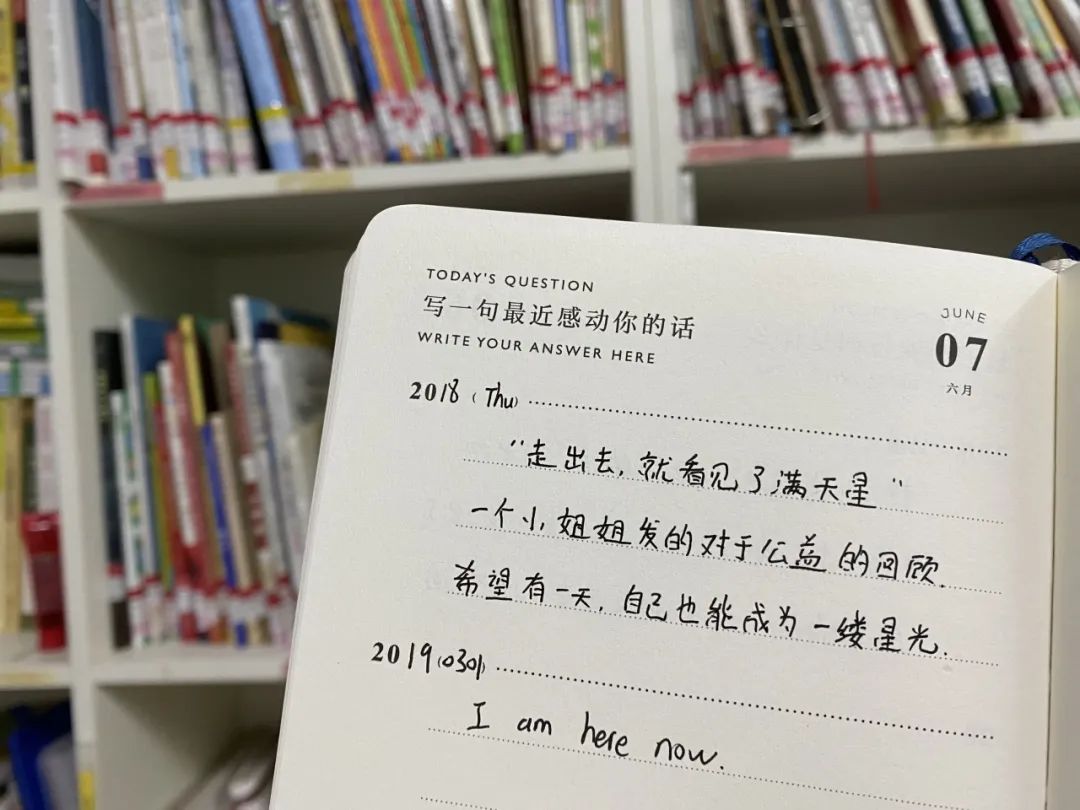 TODAY'S QUESTION
写一句最近感动你的话
WRITE YOUR ANSWER HERE
JUNE
07
六月
2018 (Thu)
“走出去，就看见了满天星”
一个小姐姐发的对于公益的回顾.
希望有一天，自己也能成为一缕星光.
2019(0301)
I am here now.